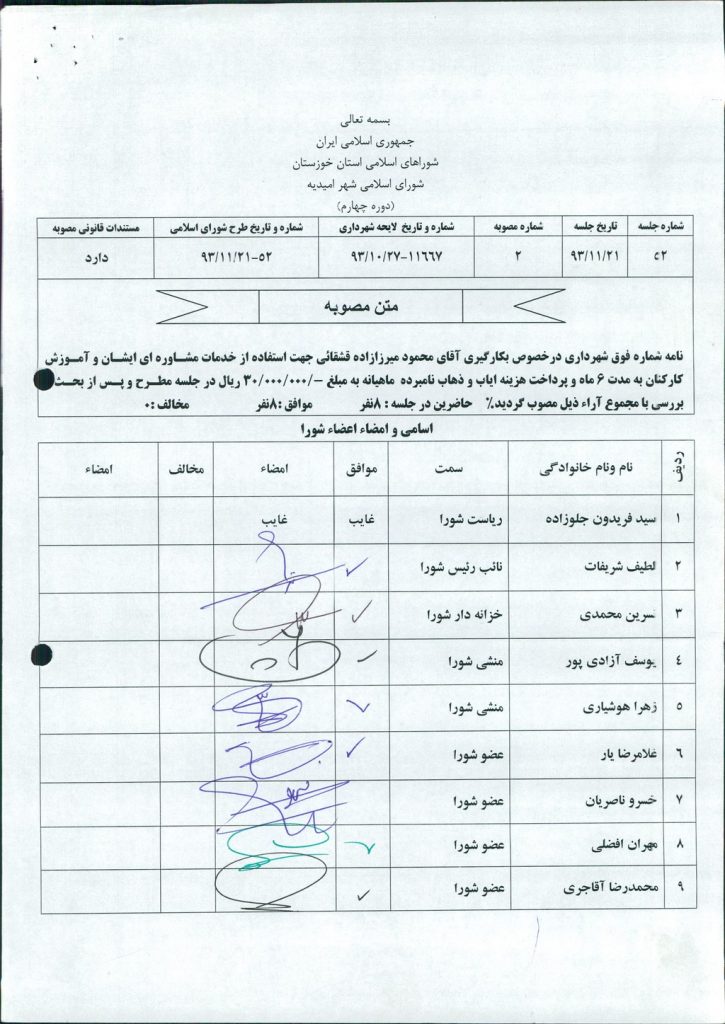 بسمه تعالی
جمهوری اسلامی ایران
شوراهای اسلامی استان خوزستان
شورای اسلامی شهر امیدیه
(دوره چهارم)
شماره جلسه تاریخ جلسه شماره مصوبه شماره و تاریخ لایحه شهرداری شماره و تاریخ طرح شورای اسلامی مستندات قانونی مصوبه
۵۲ ۹۳/۱۱/۲۱ ۲ ۹۳/۱۰/۲۷-۱۱۶۶۷ ۹۳/۱۱/۲۱-۵۲ دارد
متن مصوبه
نامه شماره فوق شهرداری درخصوص بکارگیری آقای محمود میرزازاده قشقائی جهت استفاده از خدمات مشاوره ای ایشان و آموزش
کارکنان به مدت ۶ ماه و پرداخت هزینه ایاب و ذهاب نامبرده ماهیانه به مبلغ -/۳۰/۰۰۰/۰۰۰ ریال در جلسه مطرح و پس از بحث
بررسی با مجموع آراء ذیل مصوب گردید٪ حاضرین در جلسه : ۸نفر موافق :۸نفر مخالف :۰
اسامی و امضاء اعضاء شورا
ردیف نام ونام خانوادگی سمت موافق امضاء مخالف امضاء
۱ سید فریدون جلوزاده ریاست شورا غایب غایب
۲ لطیف شریفات نائب رئیس شورا
۳ نسرین محمدی خزانه دار شورا
۴ یوسف آزادی پور منشی شورا
۵ زهرا هوشیاری منشی شورا
۶ غلامرضا یار عضو شورا
۷ خسرو ناصریان عضو شورا
۸ مهران افضلی عضو شورا
۹ محمدرضا آقاجری عضو شورا